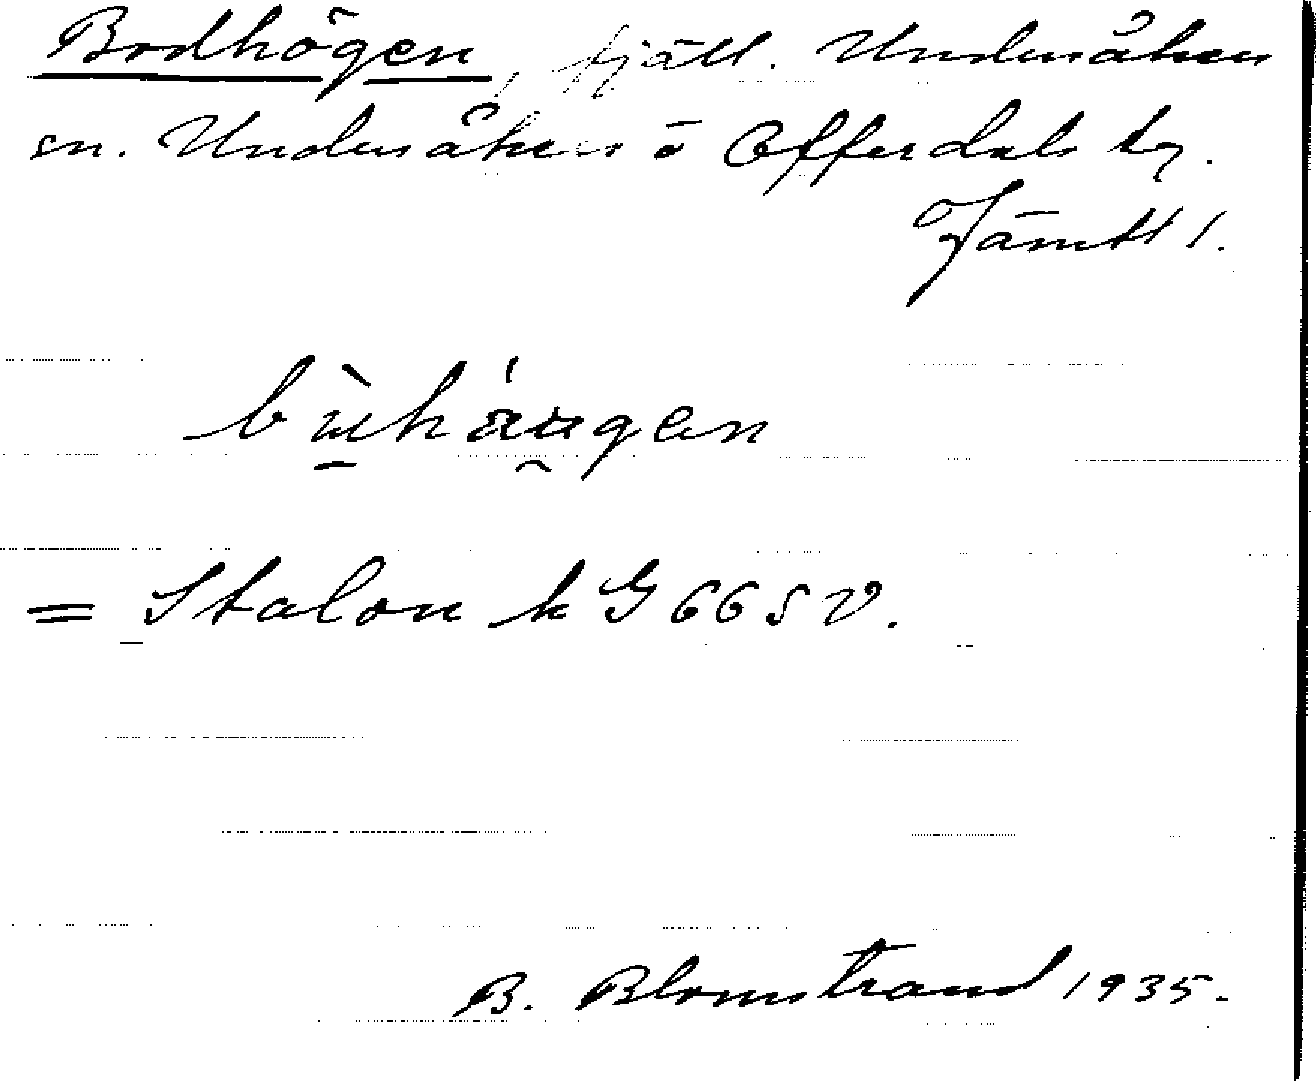 Bodhögen, fjäll. Undersåkers
sn. Undersåkers o Offerdals tg.
Jämtl l.
bùhá̈ugen
= Stalon k G 66 SV.
B. Blomstrand 1935.